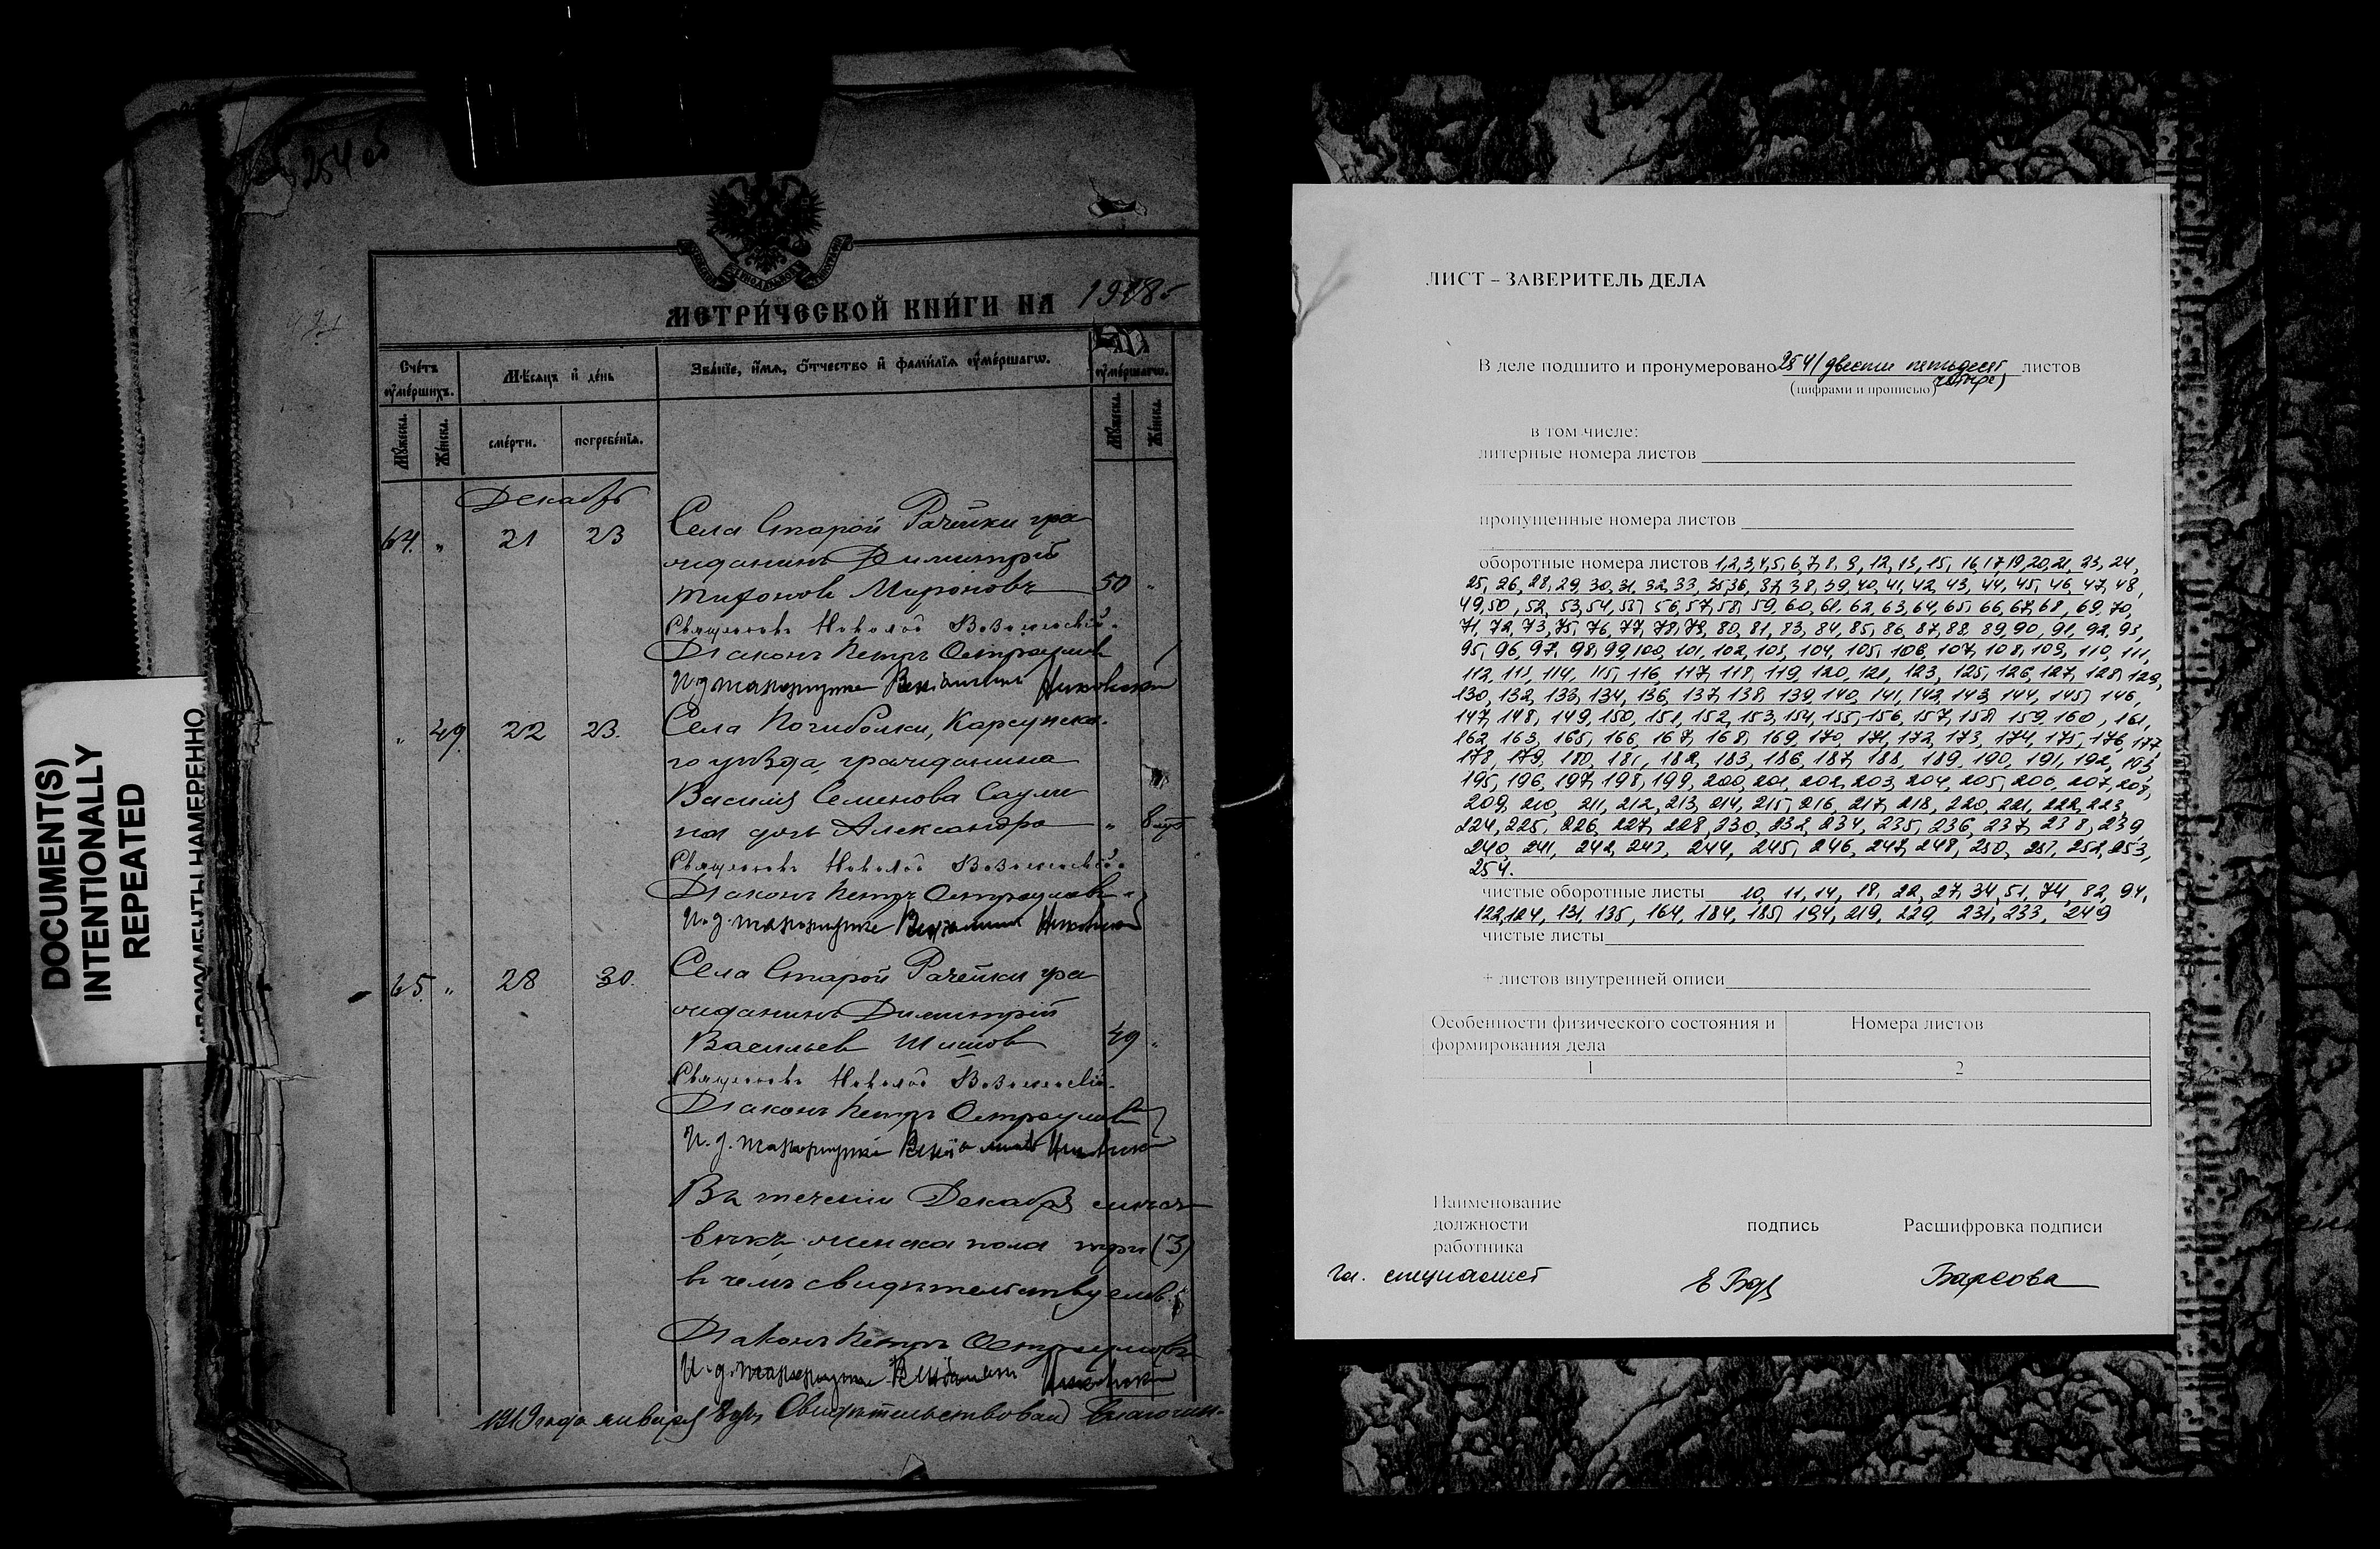 254 об
DOCUMENT(S)
INTENTIONALLY
REPEATED
ДОКУМЕНТЫ НАМЕРЕННО
МЕТРИ́ЧЕСКОЙ КНИ́ГИ НА 1918
Сче́тъ
ᲂумéршихъ.
Мѣ́сѧцъ и҆ де́нь
Зва́нїе, и҆́мѧ, ѻ҆́тчество и҆ фамѝлїѧ ᲂу҆мéршагѡ.
ᲂу҆мéршагѡ.
Мꙋжеска.
Же́нска.
сме́рти.
погребе́нїѧ.
Мꙋжеска.
Же́нска.
Декабрь
64. " 21 23 Села Старой Рачейки гра
жданинъ Димитрій
Мироновъ 50 "
Священникъ Николай Вознесенскій.
Діаконъ Петръ Остроумовъ
И. д. псаломщика
" 49 22 23. Села Погибелки, Карсунска-
го уѣзда, гражданина
Василія Семенова
дочь Александра "
Священникъ Николай Вознесенскій.
Діаконъ Петръ Остроумовъ
И. д. псаломщика
65. " 28 30. Села Старой Рачейки гра
жданинъ Димитрій
Васильевъ 49 "
Священникъ Николай Вознесенскій.
Діаконъ Петръ Остроумовъ
И. д. псаломщика
Въ теченіи Декабря
женска пола три (3)
въ чемъ свидѣтельствуемъ.
Діаконъ Петръ Остроумовъ
И. д. псаломщика
1919 года января 8 дня Свидѣтельствовалъ Благочин-
ЛИСТ – ЗАВЕРИТЕЛЬ ДЕЛА
В деле подшито и пронумеровано 254 (двести пятьдесят листов
(цифрами и прописью) четыре)
в том числе:
литерные номера листов
пропущенные номера листов
оборотные номера листов 1,2,3,4,5,6,7,8,9,12,13,15,16,17,19,20,21,23,24,
25,26,28,29,30,31,32,33,35,36,37,38,39,40,41,42,43,44,45,46,47,48,
49,50,52,53,54,55,56,57,58,59,60,61,62,63,64,65,66,67,68,69,70,
71,72,73,75,76,77,78,79,80,81,83,84,85,86,87,88,89,90,91,92,93,
95,96,97,98,99,100,101,102,103,104,105,106,107,108,109,110,111,
112,113,114,115,116,117,118,119,120,121,123,125,126,127,128,129,
130,132,133,134,136,137,138,139,140,141,142,143,144,145,146,
147,148,149,150,151,152,153,154,155,156,157,158,159,160,161,
162,163,165,166,167,168,169,170,171,172,173,174,175,176,177,
178,179,180,181,182,183,186,187,188,189,190,191,192,193,
195,196,197,198,199,200,201,202,203,204,205,206,207,208,
209,210,211,212,213,214,215,216,217,218,220,221,222,223,
224,225,226,227,228,230,232,234,235,236,237,238,239,
240,241,242,243,244,245,246,247,248,250,251,252,253,
254.
чистые оборотные листы 10,11,14,18,22,27,34,51,74,82,94,
122,124,131,135,164,184,185,194,219,229,231,233,249
чистые листы
+ листов внутренней описи
Особенности физического состояния и Номера листов
формирования дела
1 2
Наименование
должности подпись Расшифровка подписи
работника
Гл. специалист Барсова